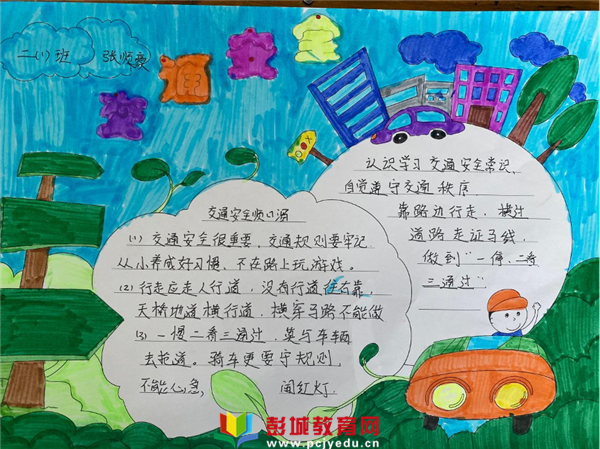 二(1)班 张顺豪
交通安全
认识学习交通安全常识,
自觉遵守交通秩序
靠路边行走,横过
道路走斑马线,
做到"一停、二看
三通过"
交通安全顺口溜
(1)交通安全很重要,交通规则要牢记
从小养成好习惯,不在路上玩游戏。
(2)行走应走人行道,没有行道往右靠
天桥地道横行道,横穿马路不能做
(3)一慢二看三通过,莫与车辆
去抢道。骑车更要守规则,
不能心急, 闯红灯.
彭城教育网
www.pcjyedu.cn